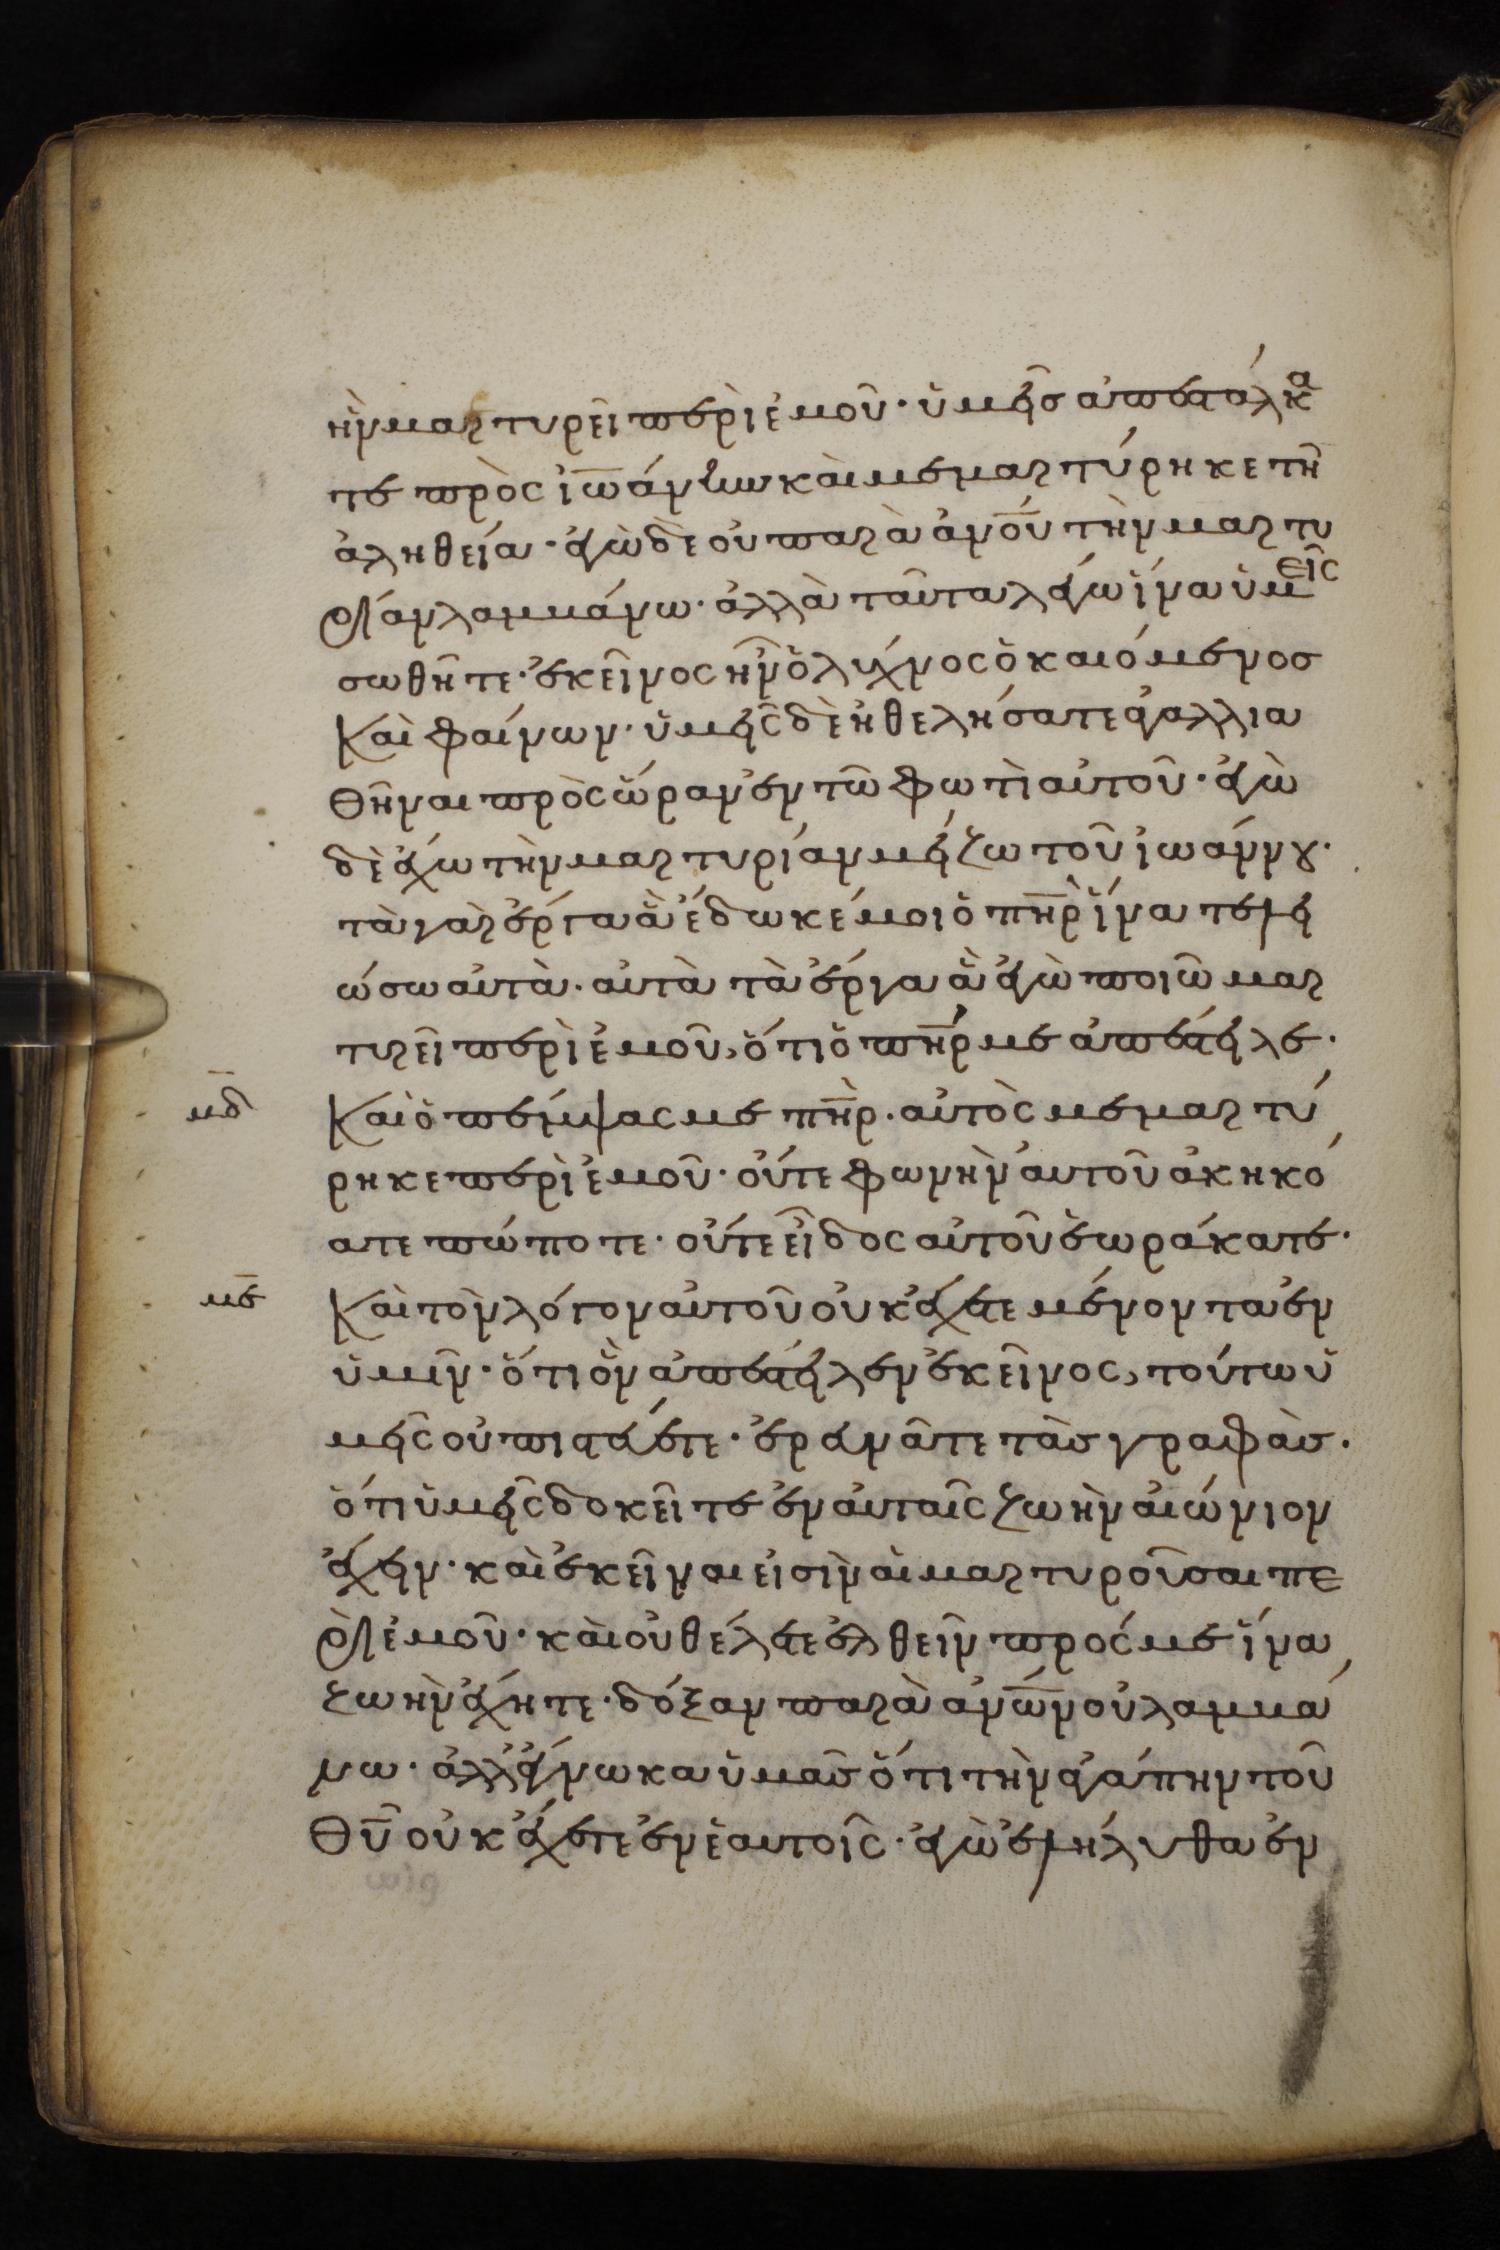 ἣν μαρτυρεῖ περὶ ἐμοῦ· ὑμεῖσ ἀπεστάλκα
τε πρὸς ἰωάννην καὶ μεμαρτύρηκε τῆ
ἀληθεία· ἐγὼ δὲ οὐ παρὰ ἀνου τὴν μαρτυ
ρίαν λαμμάνω· ἀλλὰ ταῦτα λέγω ἵνα ὑμεῖς
σωθῆτε· ἐκεῖνος ἦν ὁ λύχνος ὁ καιόμενοσ
Καὶ φαίνων· ὑμεῖς δὲ ἠθελήσατε ἀγαλλια
θῆναι πρὸς ὥραν ἐν τῶ φωτὶ αὐτοῦ· ἐγὼ
δὲ ἔχω τὴν μαρτυρίαν μείζω τοῦ ἰωάννου·
τὰ γὰρ ἔργα ἃ ἔδωκέ μοι ὁ πηρ ἵνα τελει
ώσω αὐτὰ· αὐτὰ τὰ ἔργα ἃ ἐγὼ ποιῶ μαρ
τυρεῖ περὶ ἐμοῦ, ὅτι ὁ πηρ με ἀπέστειλε·
μδ Καὶ ὁ πέμψας με πηρ· αὐτὸς μεμαρτύ
ρηκε περὶ ἐμοῦ· οὔτε φωνὴν αυτοῦ ἀκηκό
ατε πώποτε· οὔτε εἶδος αὐτοῦ ἑωράκατε·
με Καὶ τὸν λόγον αὐτοῦ οὐκ ἔχετε μένοντα ἐν
ὑμῖν· ὅτι ὃν ἀπέστειλεν ἐκεῖνος, τούτω ὑ
μεῖς οὐ πιστεύετε· ἐρευνᾶτε τὰσ γραφὰσ·
ὅτι ὑμεῖς δοκεῖτε ἐν αὐταῖς ζωὴν αἰώνιον
ἔχειν· καὶ ἐκεῖναι εἰσὶν αἱ μαρτυροῦσαι πε
ρὶ ἐμοῦ· καὶ οὐ θέλετε ἐλθεῖν προς με ἵνα
ζωὴν ἔχητε· δόξαν παρὰ ανων οὐ λαμμά
νω· ἀλλ' ἔγνωκα ὑμᾶσ ὅτι τὴν ἀγάπην τοῦ
θυ οὐκ ἔχετε ἐν ἑαυτοῖς· ἐγὼ ἐλήλυθα ἐν